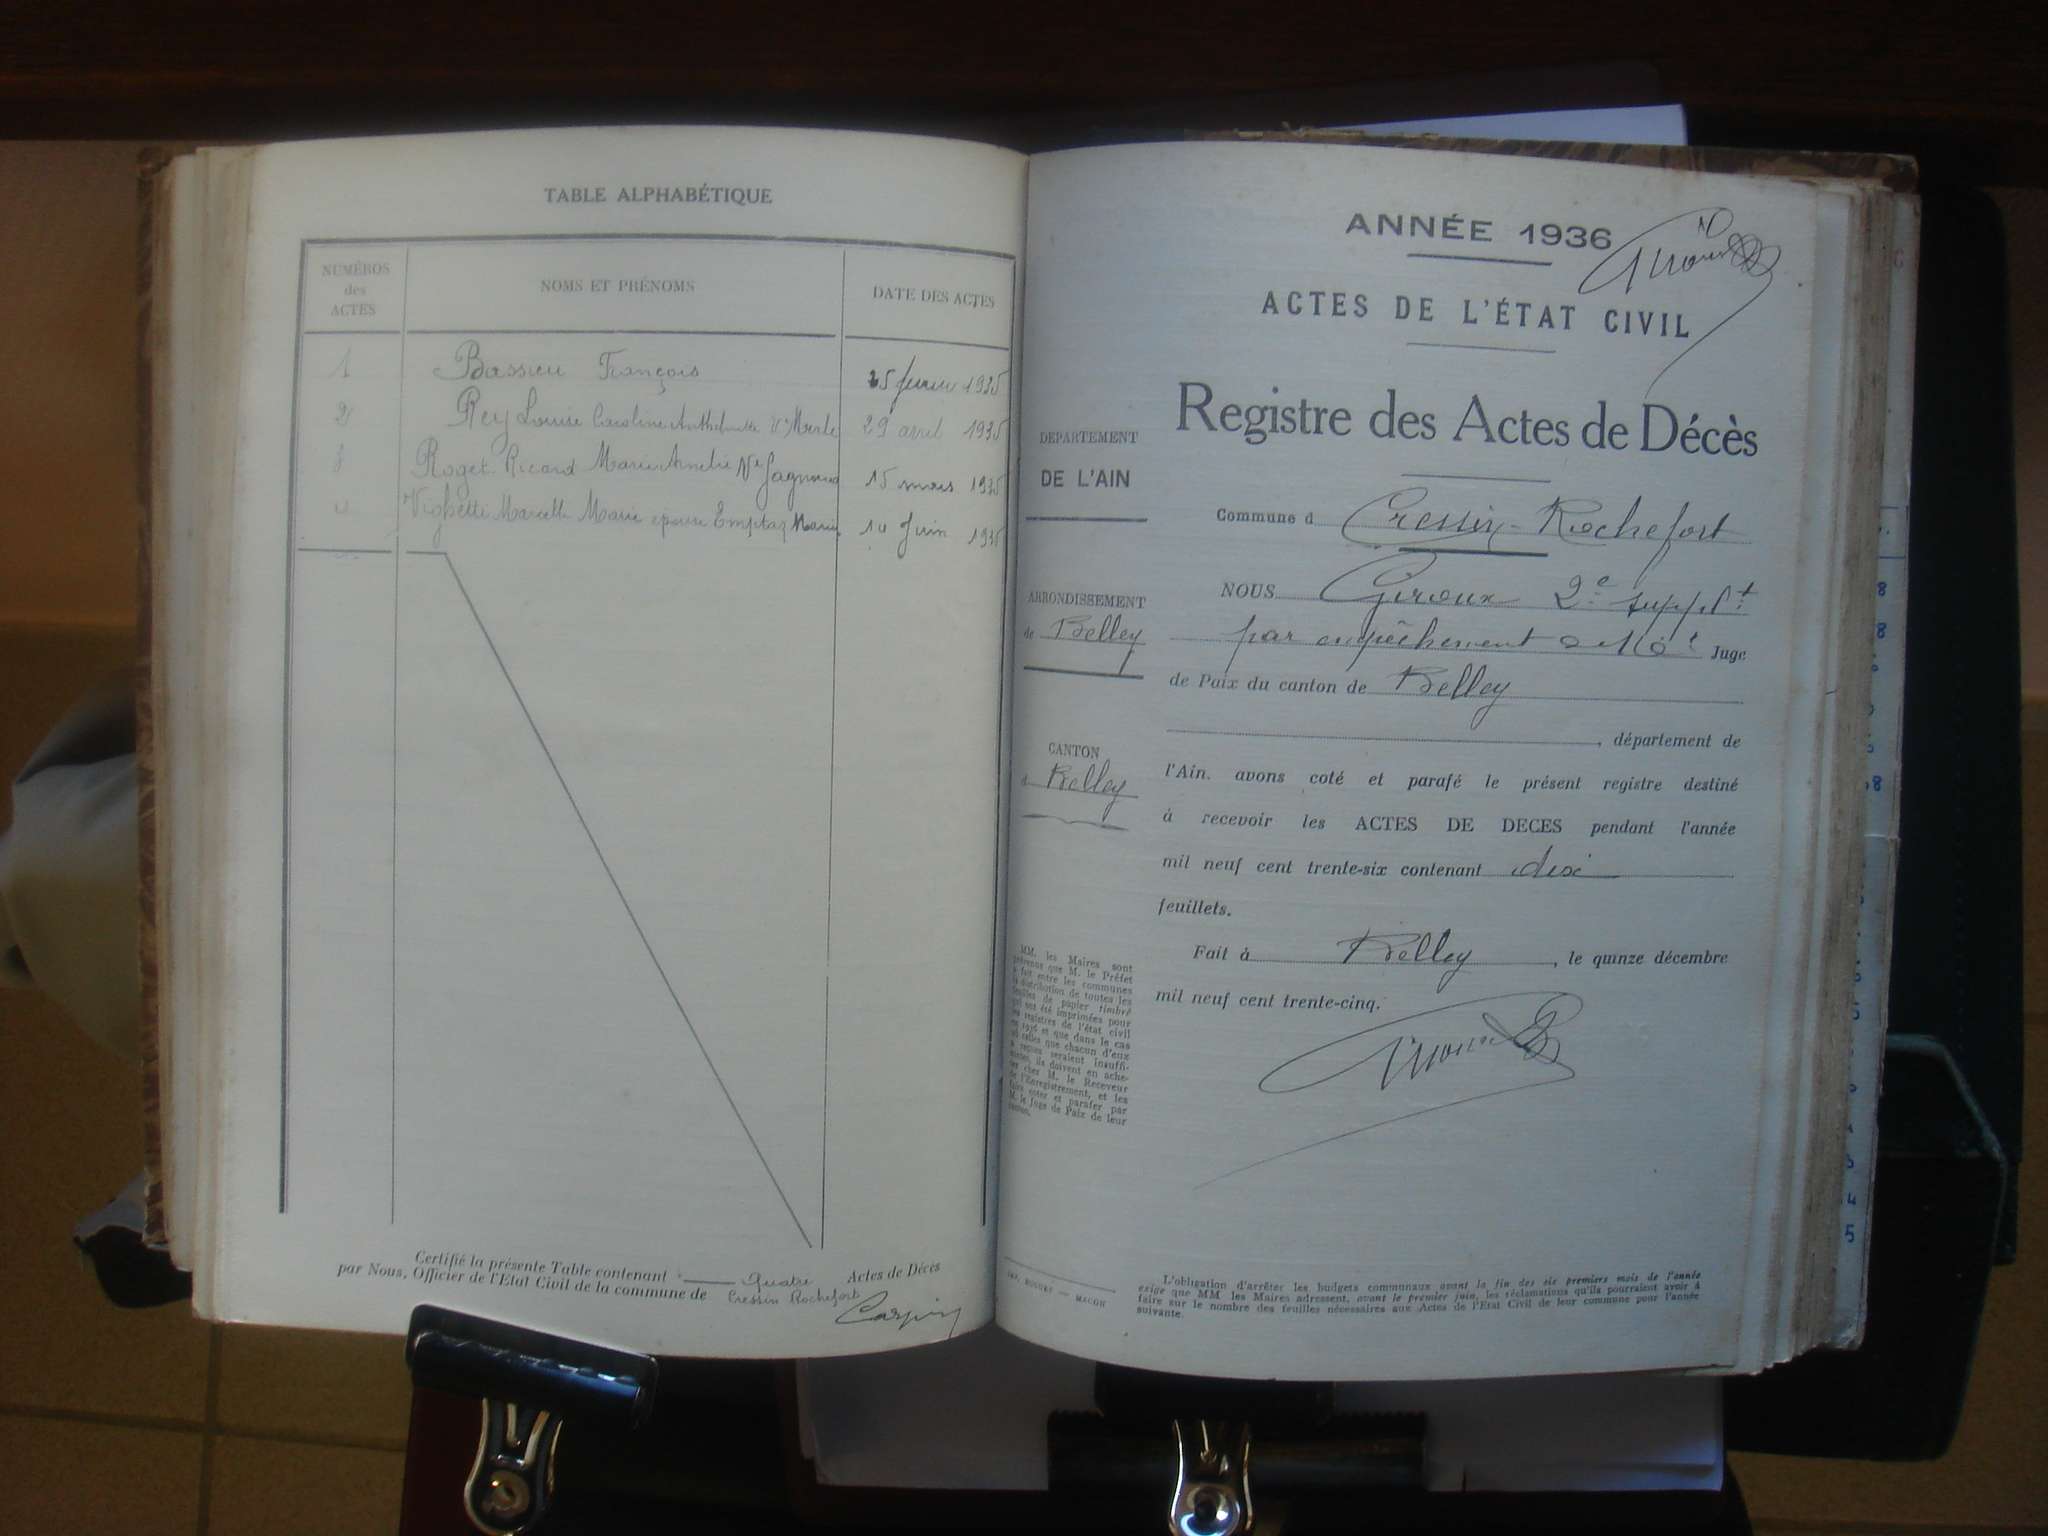 TABLE ALPHABÉTIQUE
NUMÉROS
des
ACTES
NOMS ET PRÉNOMS
DATE DES ACTES
1 Bassieu François 25 février 1935
2 Rey Louise Caroline Anthelmette Vve Merle 29 avril 1935
3 Roget Ricard Marie Amélie Ve Gagnoud 15 mars 1935
4 Marcelle Marie épouse Emptaz Marin 14 Juin 1935
Certifié la présente Table contenant quatre Actes de Décès
par Nous, Officier de l'Etat Civil de la commune de Cressin Rochefort
Carpin
ANNÉE 1936
ACTES DE L'ÉTAT CIVIL
Registre des Actes de Décès
DEPARTEMENT
DE L'AIN
Commune d Cressin-Rochefort
ARRONDISSEMENT
de Belley
NOUS Giroux 2e supplt
par empêchement Juge
de Paix du canton de Belley
, département de
CANTON
d Belley
l'Ain, avons coté et parafé le présent registre destiné
à recevoir les ACTES DE DECES pendant l'année
mil neuf cent trente-six contenant dix
feuillets.
Fait à Belley, le quinze décembre
mil neuf cent trente-cinq.
MM. les Maires sont
prévenus que M. le Préfet
a fait entre les communes
la distribution de toutes les
feuilles de papier timbré
qui ont été imprimées pour
les registres de l'état civil
en 1936 et que dans le cas
où celles que chacun d'eux
a reçues seraient insuffi-
santes, ils doivent en ache-
ter chez M. le Receveur
de l'Enregistrement, et les
faire coter et parafer par
M. le Juge de Paix de leur
canton.
MACON
L'obligation d'arrêter les budgets communaux avant la fin des six premiers mois de l'année
exige que MM. les Maires adressent, avant le premier juin, les réclamations qu'ils pourraient avoir à
faire sur le nombre des feuilles nécessaires aux Actes de l'Etat Civil de leur commune pour l'année
suivante.